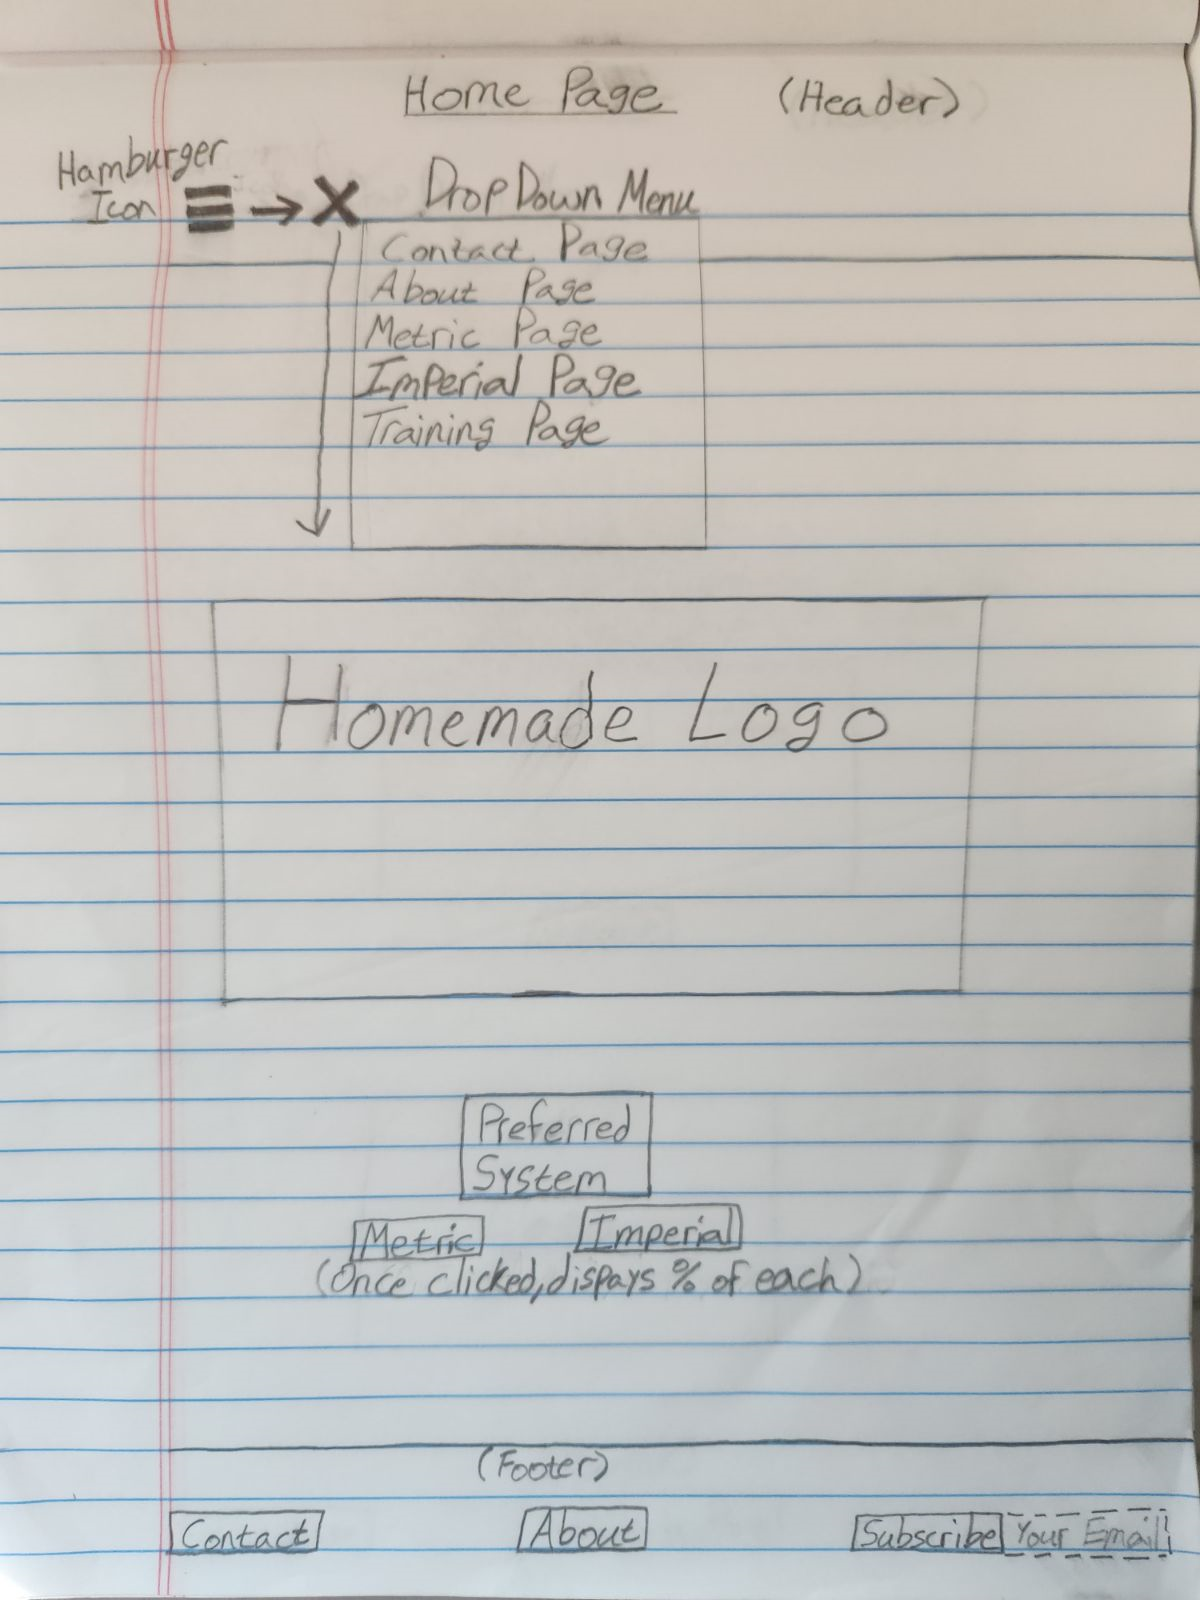 Home Page (Header)
Hamburger
Icon
Drop Down Menu
Contact Page
About Page
Metric Page
Imperial Page
Training Page
Homemade Logo
Preferred
System
Metric Imperial
(Once clicked, dispays % of each)
(Footer)
Contact About Subscribe Your Email